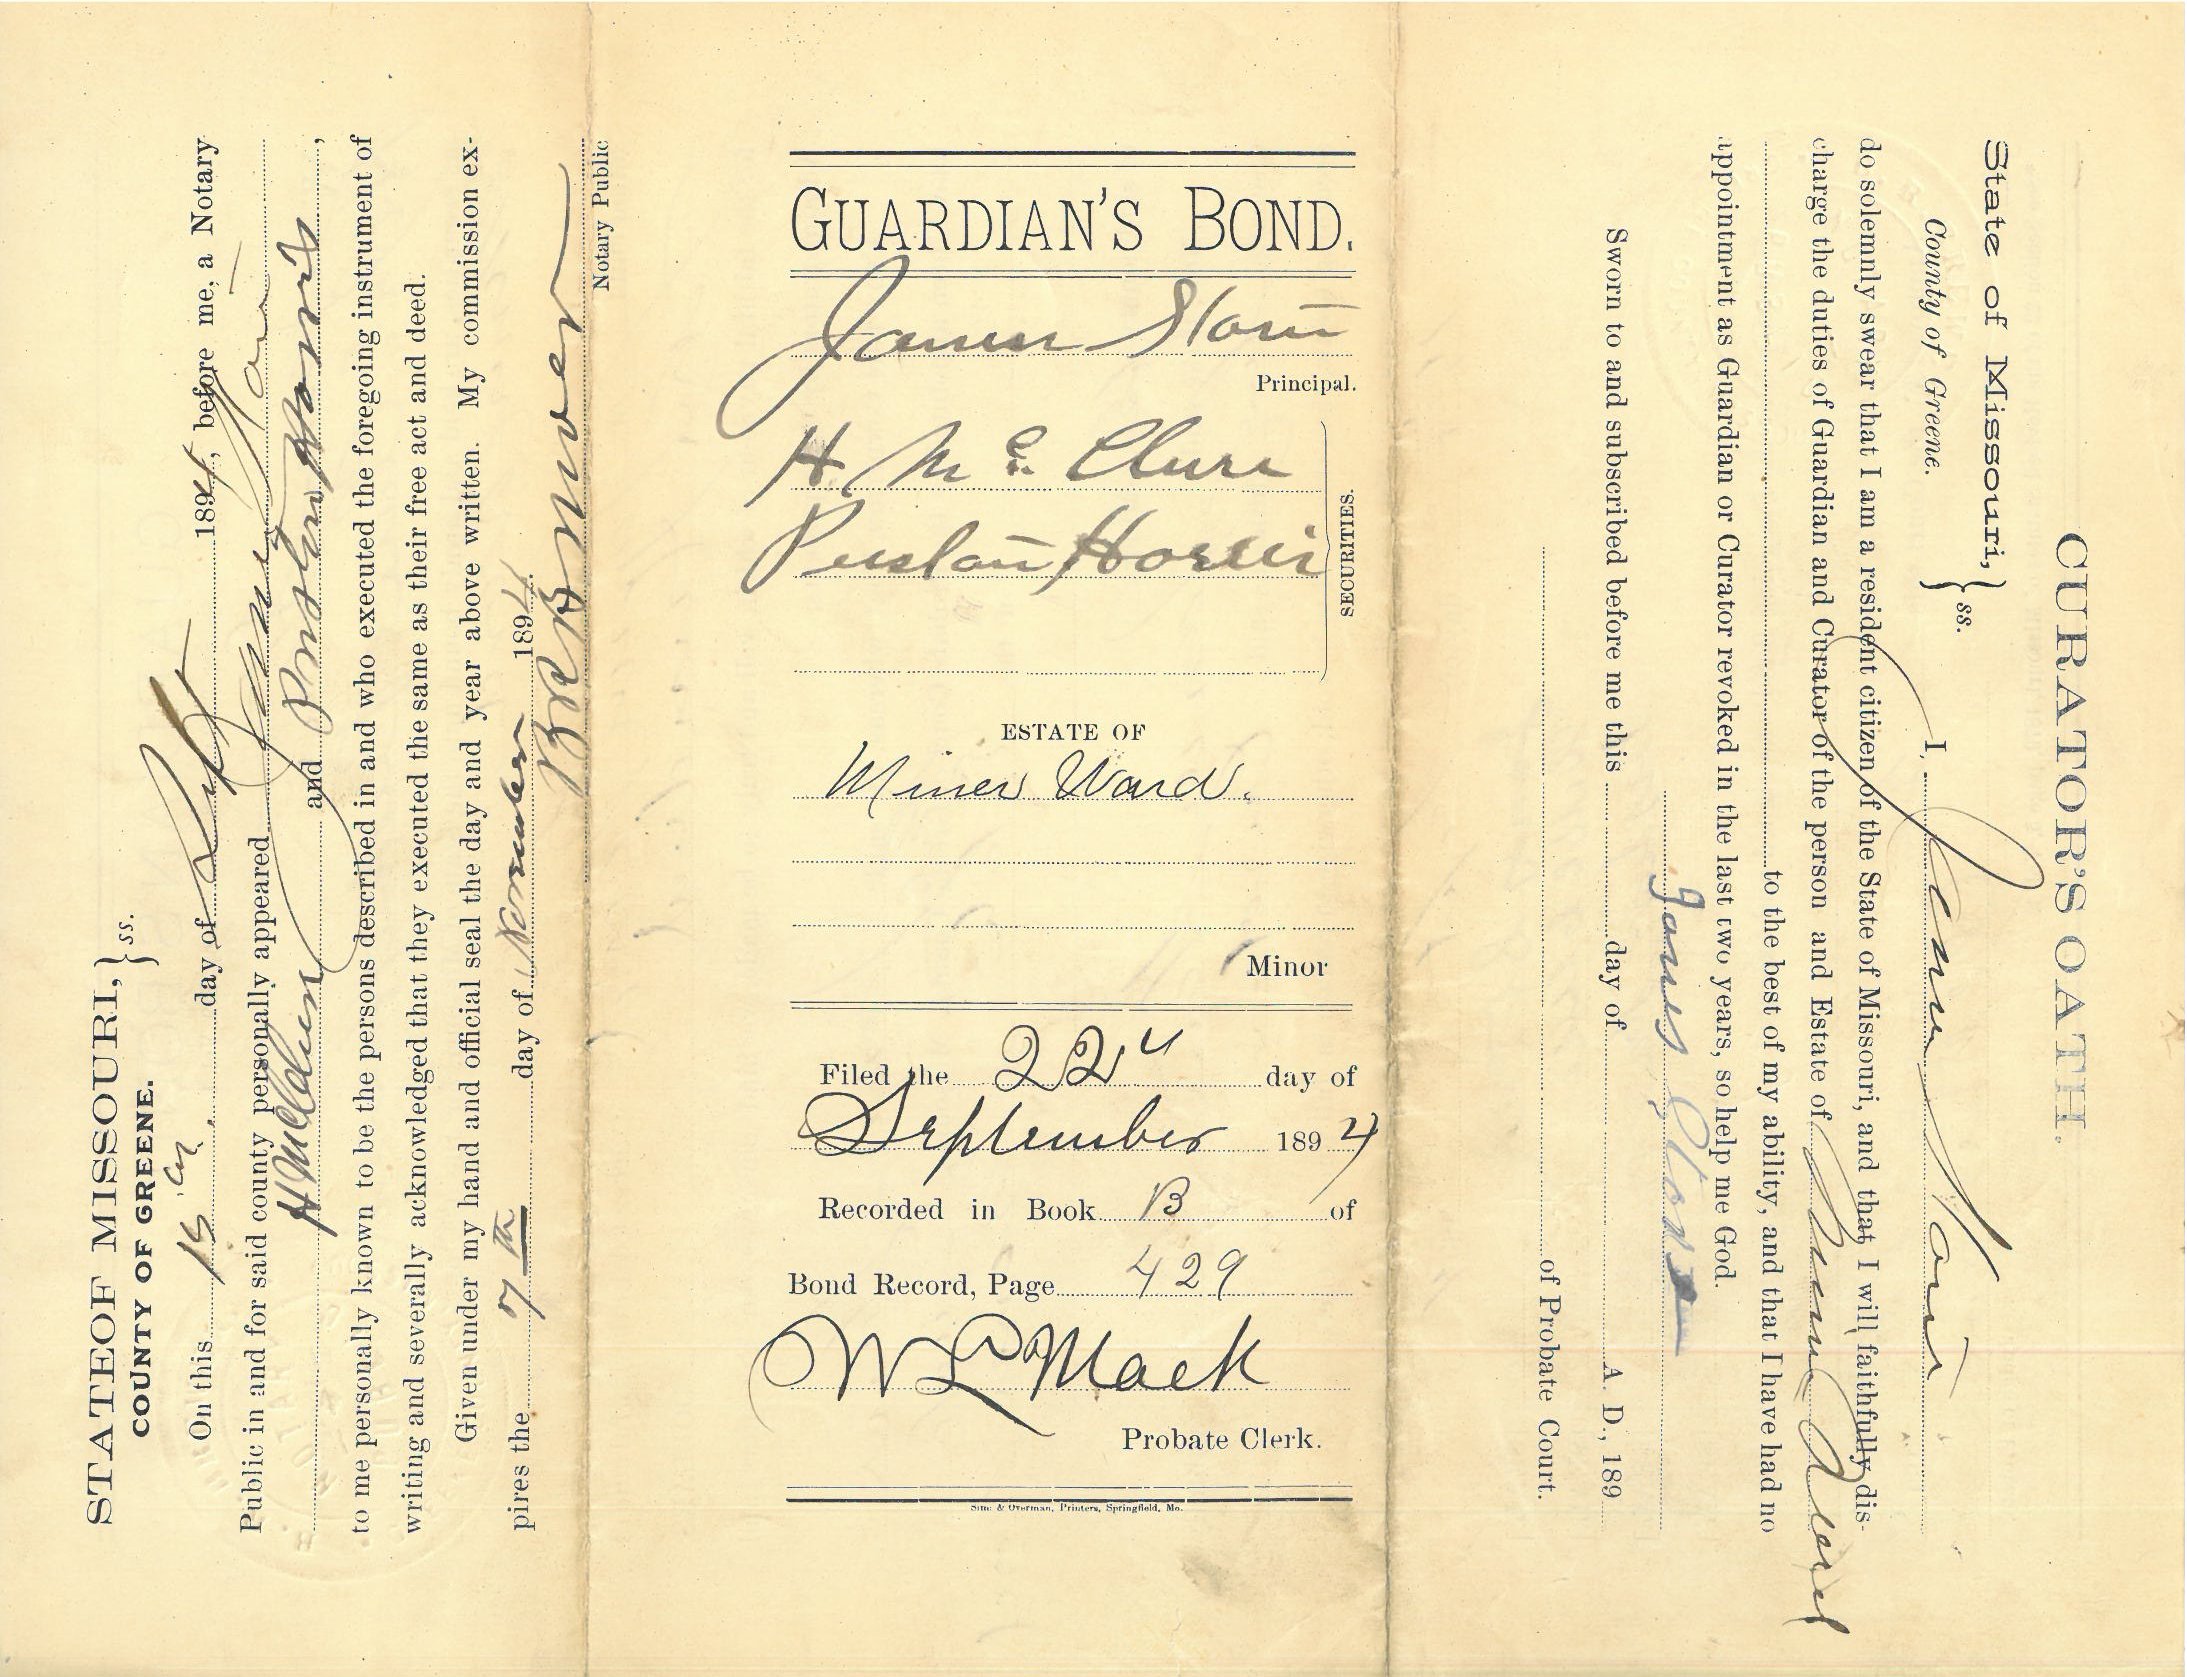 STATE OF MISSOURI,
COUNTY OF GREENE. } ss.
On this 15 day of Sept 1894, before me, a Notary
Public in and for said county personally appeared James
H McClure and Preston Harris,
to me personally known to be the persons described in and who executed the foregoing instrument of
writing and severally acknowledged that they executed the same as their free act and deed.
Given under my hand and official seal the day and year above written. My commission ex-
pires the 7th day of November 189
Brower
Notary Public
GUARDIAN'S BOND.
James Stone
Principal.
H. McClure
Preston Harris
SECURITIES.
ESTATE OF
Miner Ward.
Minor
Filed the 22d day of
September 1894
Recorded in Book B of
Bond Record, Page 429
W L Mack
Probate Clerk.
Sim: & Overman, Printers, Springfield, Mo.
CURATOR'S OATH.
State of Missouri,
County of Greene. } ss. I, James
do solemnly swear that I am a resident citizen of the State of Missouri, and that I will faithfully dis-
charge the duties of Guardian and Curator of the person and Estate of Miner Ward
to the best of my ability, and that I have had no
appointment as Guardian or Curator revoked in the last two years, so help me God.
James Stone
Sworn to and subscribed before me this day of A. D., 189
of Probate Court.